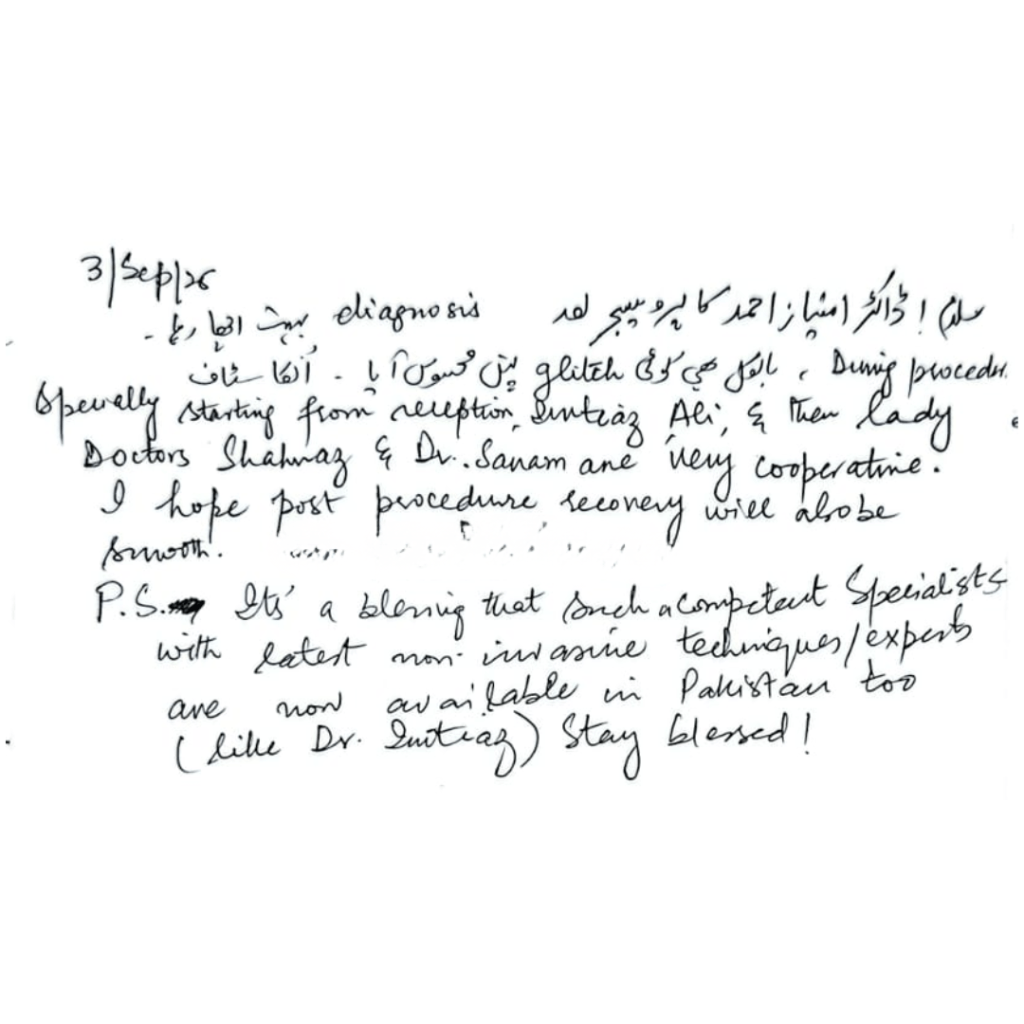 3/Sep/25
سلام! ڈاکٹر امتیاز احمد کا پروسیجر اور diagnosis بہت اچھا رہا۔
During procedure، بالکل بھی کوئی glitch نہیں محسوس آیا۔ اُنکا سٹاف
Specially starting from reception, Imtiaz Ali, & then lady
Doctors Shahnaz & Dr. Sanam are very cooperative.
I hope post procedure recovery will also be
smooth.
P.S. Its' a blessing that such a competent Specialists
with latest non-invasive techniques/experts
are now available in Pakistan too
(like Dr. Imtiaz) Stay blessed!